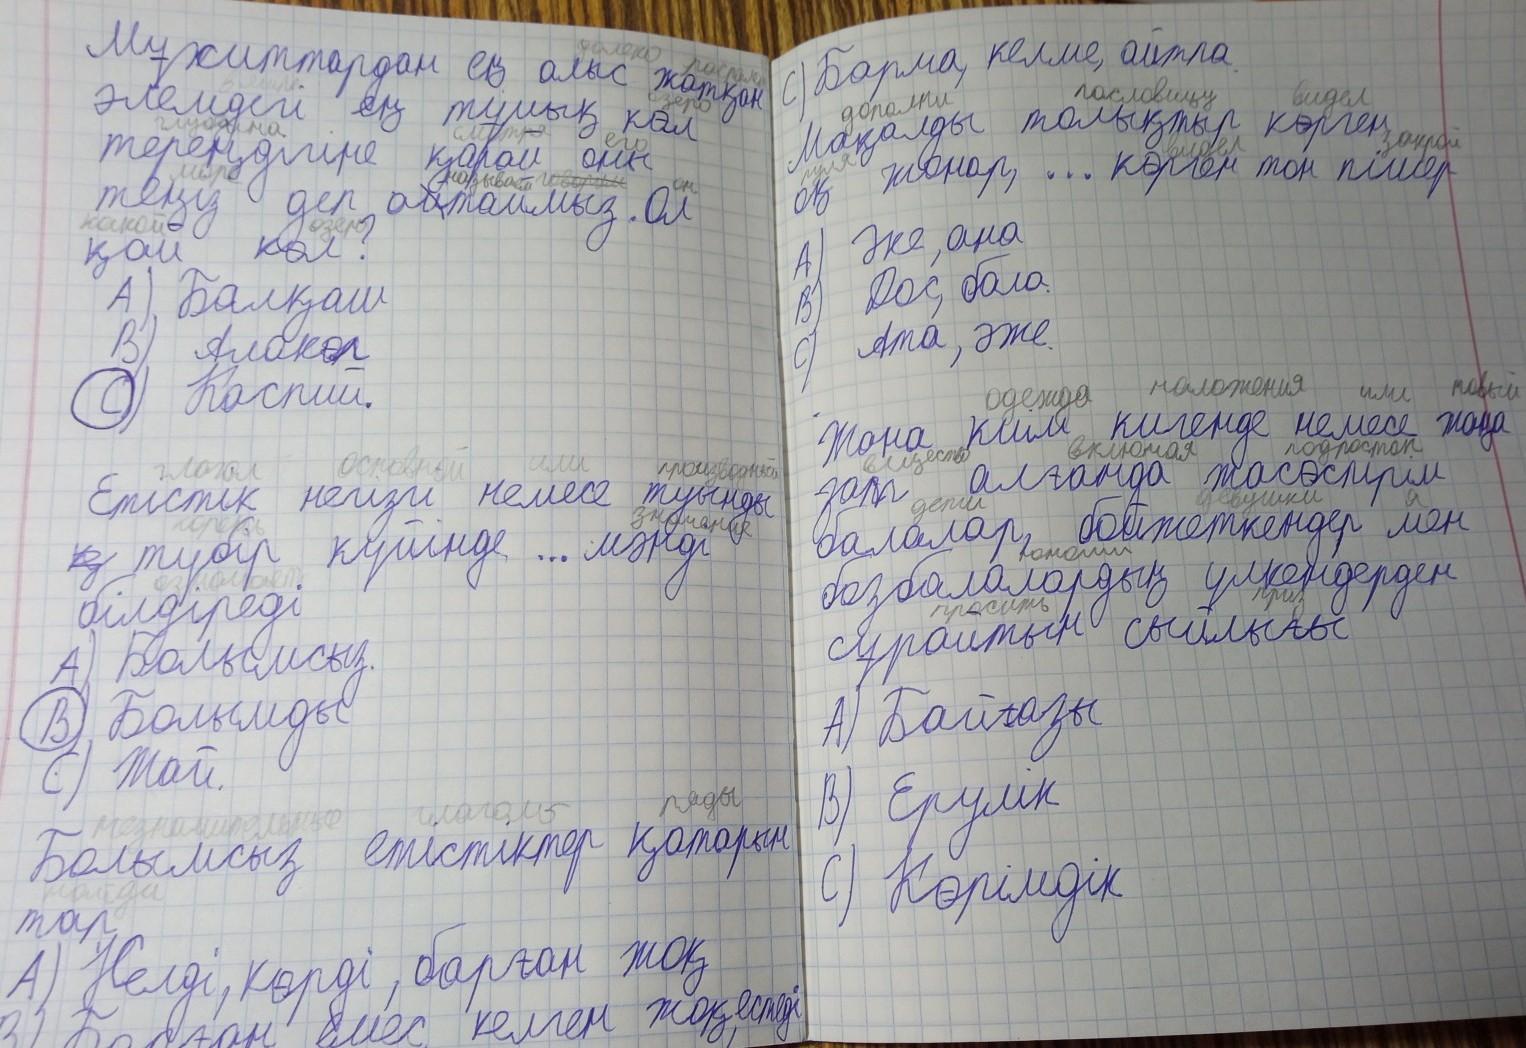 далеко расположен
Мұхиттардан ең алыс жатқан
озеро
әлемдегі ең тұйық көл
глубина смотря его
тереңдігіне қарай оны
море называем говорим он
теңіз деп айтаймыз. Ол
какой озеро
қай көл?
A) Балқаш
B) Алакөл
C) Каспий.
глагол основной или производный
Етістік негізгі немесе туынды
корень значение
түбір күйінде ... мәнді
означает
білдіреді
A) Болымсыз.
B) Болымды
C) Жай.
незначительные глаголы ряды
Болымсыз етістіктер қатарын
найди
тап
A) Келді, көрді, барған жоқ
B) Барған емес, келген жоқ, естеді
C) Барма, келме, айтпа.
дополни пословицу видел
Мақалды толықтыр көрген
пуля видел закрой
оқ жонар, ... көрген тон пішер
A) Әке, ана
B) Дос, бала.
C) Ата, әже.
одежда наложения или новый
Жаңа киім кигенде немесе жаңа
вещество включая подросток
зат алғанда жасөспірім
дети девушки и
балалар, бойжеткендер мен
бозбалалардың үлкендерден
просить приз
сұрайтын сыйлығы
A) Байғазы
B) Ерулік
C) Көрімдік